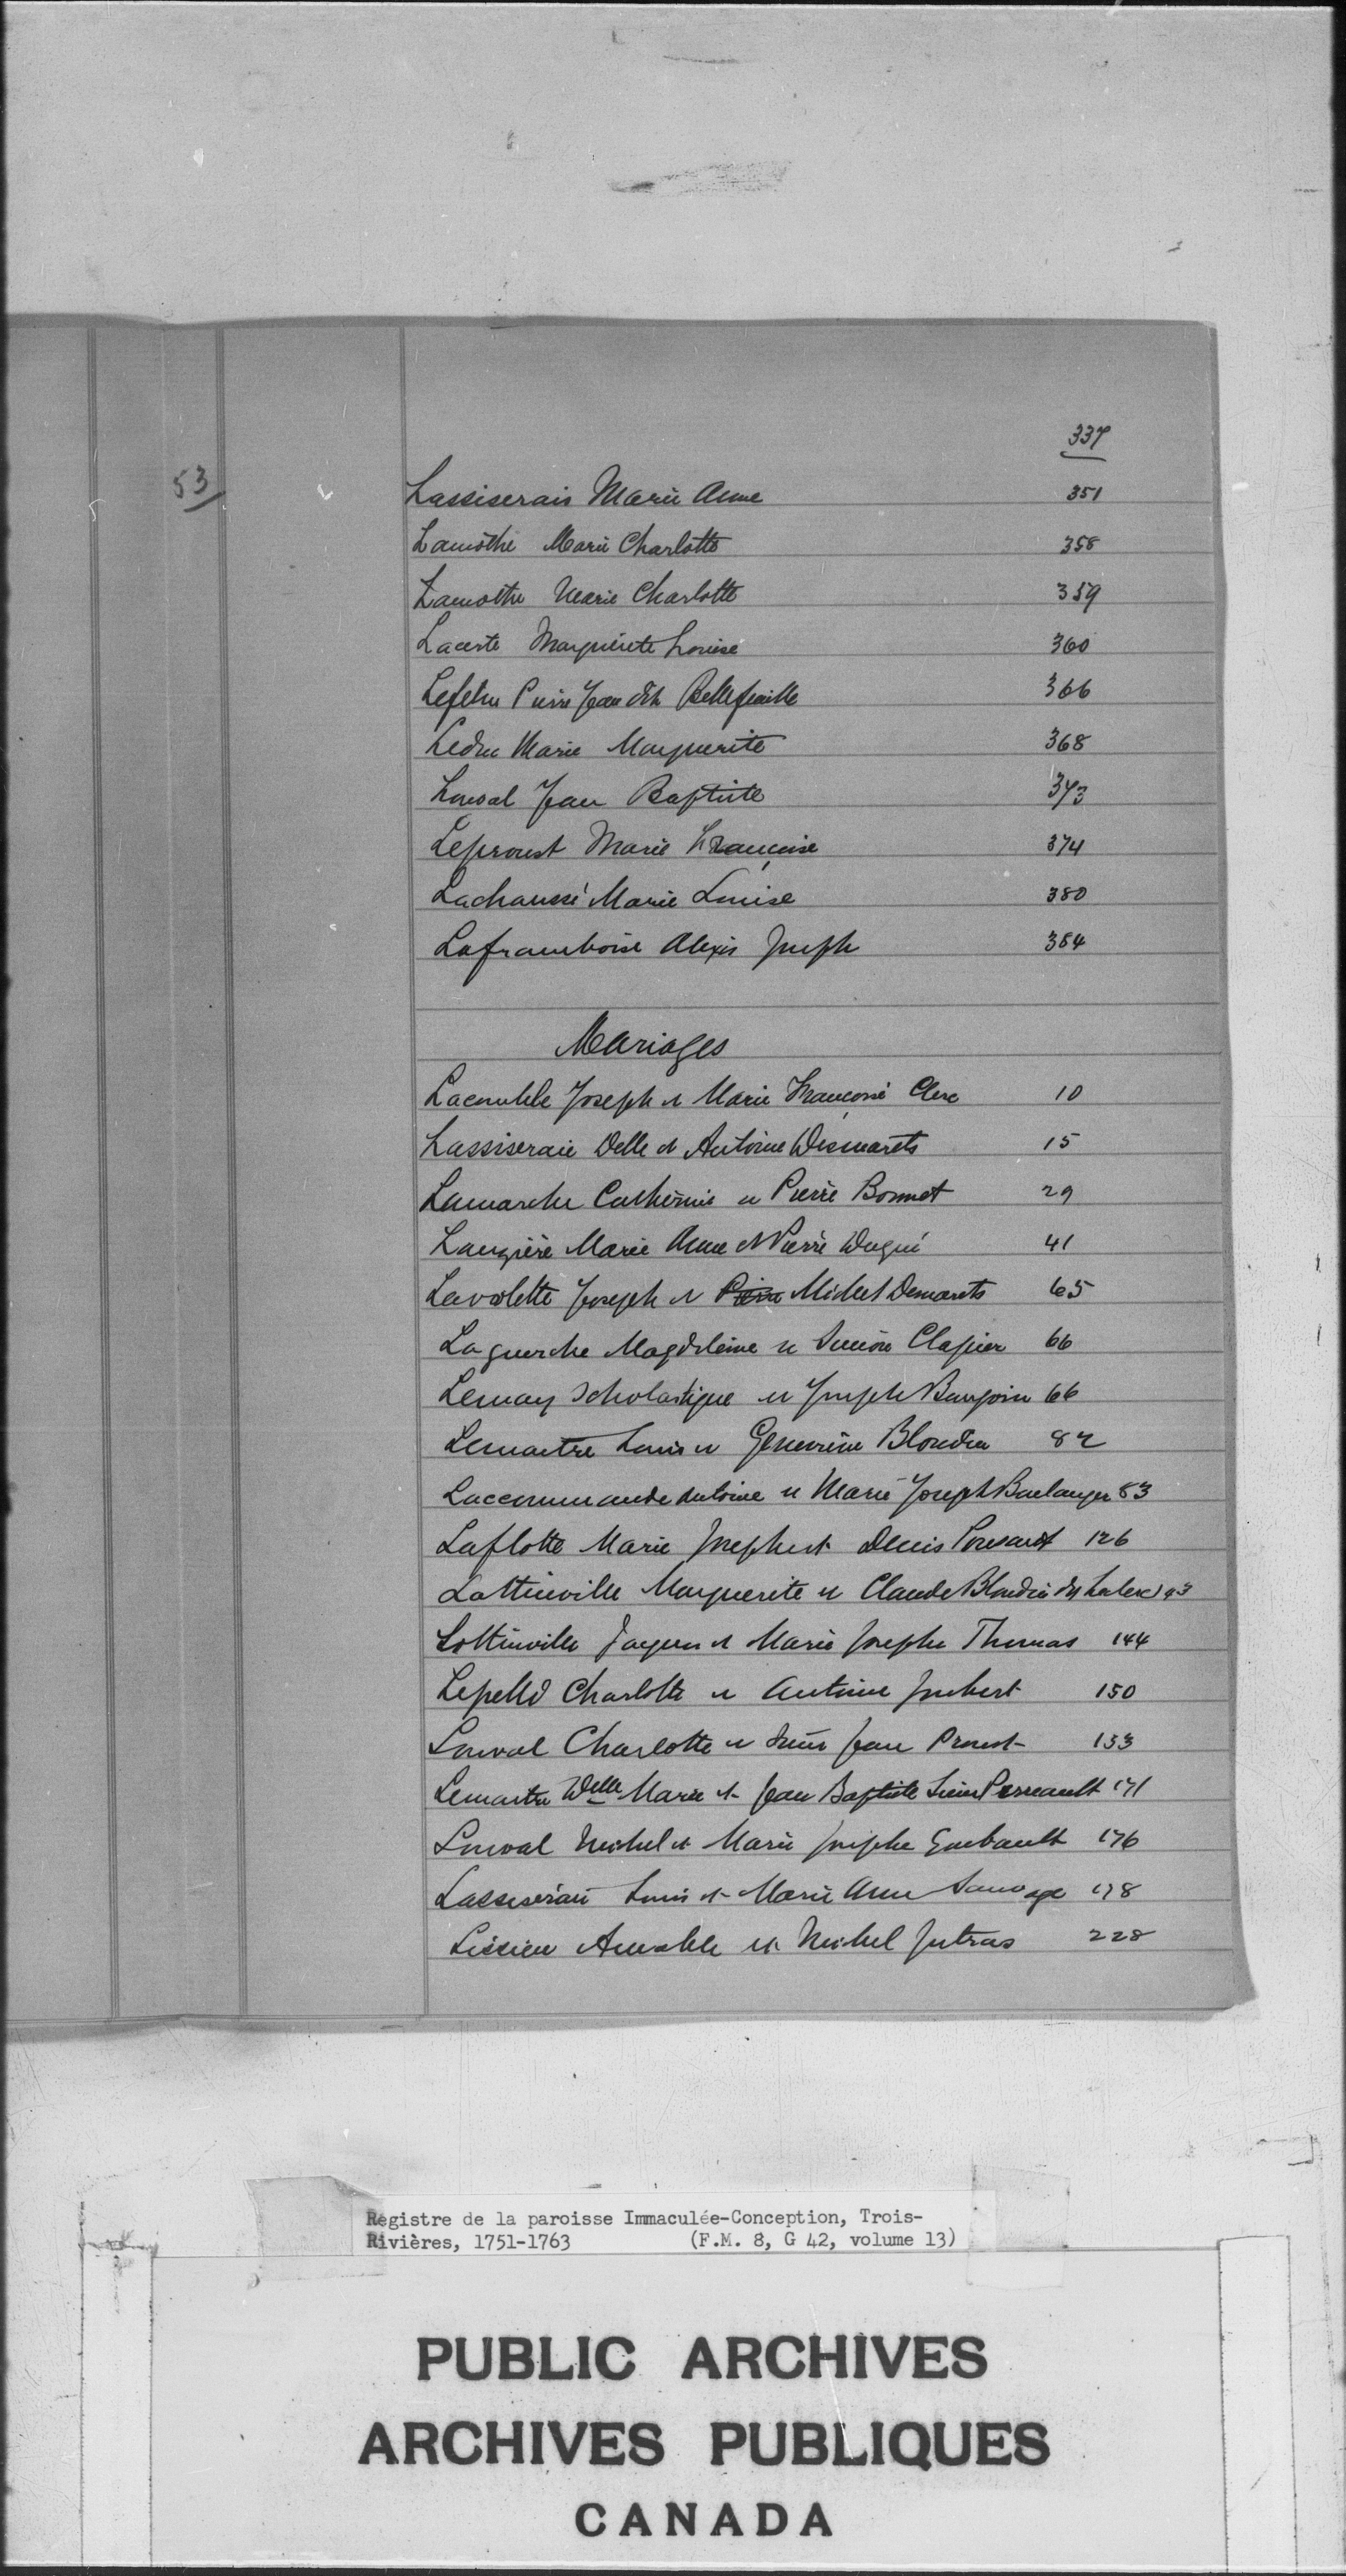 337
53
Lassiserais Marie Anne 351
Lamothe Marie Charlotte 358
Lamothe Marie Charlotte 359
Lacerte Marguerite Louise 360
Lefebvre Pierre Jean dit Bellefeuille 366
Leduc Marie Marguerite 368
Louval Jean Baptiste 373
Leproust Marie Françoise 374
Lachaussé Marie Louise 380
Laframboise Alexis Joseph 384
Mariages
Joseph et Marie Françoise Clerc 10
Lassiseraie Delle et Antoine Desmarets 15
Lamarche Catherine et Pierre Bonnet 29
Lauzière Marie Anne et Pierre Dugué 41
Lavolette Joseph et Pierre Michel Demarets 65
Laguerche Magdeleine et Simon Clapier 66
Lemay Scholastique et Joseph Baugoin 66
Lemaitre Louis et Genevieve Blondin 82
Laccommande Antoine et Marie Joseph Boulanger 83
Laflotte Marie Josephe et Denis 126
Lottinville Marguerite et Claude Blondin
Lottinville Jacques et Marie Josephe Thomas 144
Lepellé Charlotte et Antoine Joubert 150
Louval Charlotte et Sieur Jean Proust 153
Lemaitre Delle Marie et Jean Baptiste Sieur Perreault 171
Louval Michel et Marie Josephe Guibault 176
Lassiseraie Louis et Marie Anne Sauvage 178
Lissieu Amable et Michel Jutras 228
Registre de la paroisse Immaculée-Conception, Trois-
Rivières, 1751-1763 (F.M. 8, G 42, volume 13)
PUBLIC ARCHIVES
ARCHIVES PUBLIQUES
CANADA